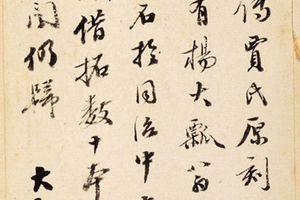 傳賈氏原刻
有楊大瓢翁
石於同治中
借拓數十本
閣仍歸
大